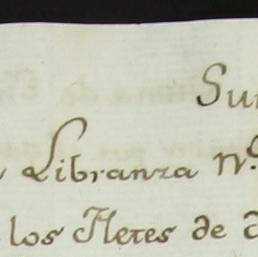 Sum
Libranza N.º
los Fletes de